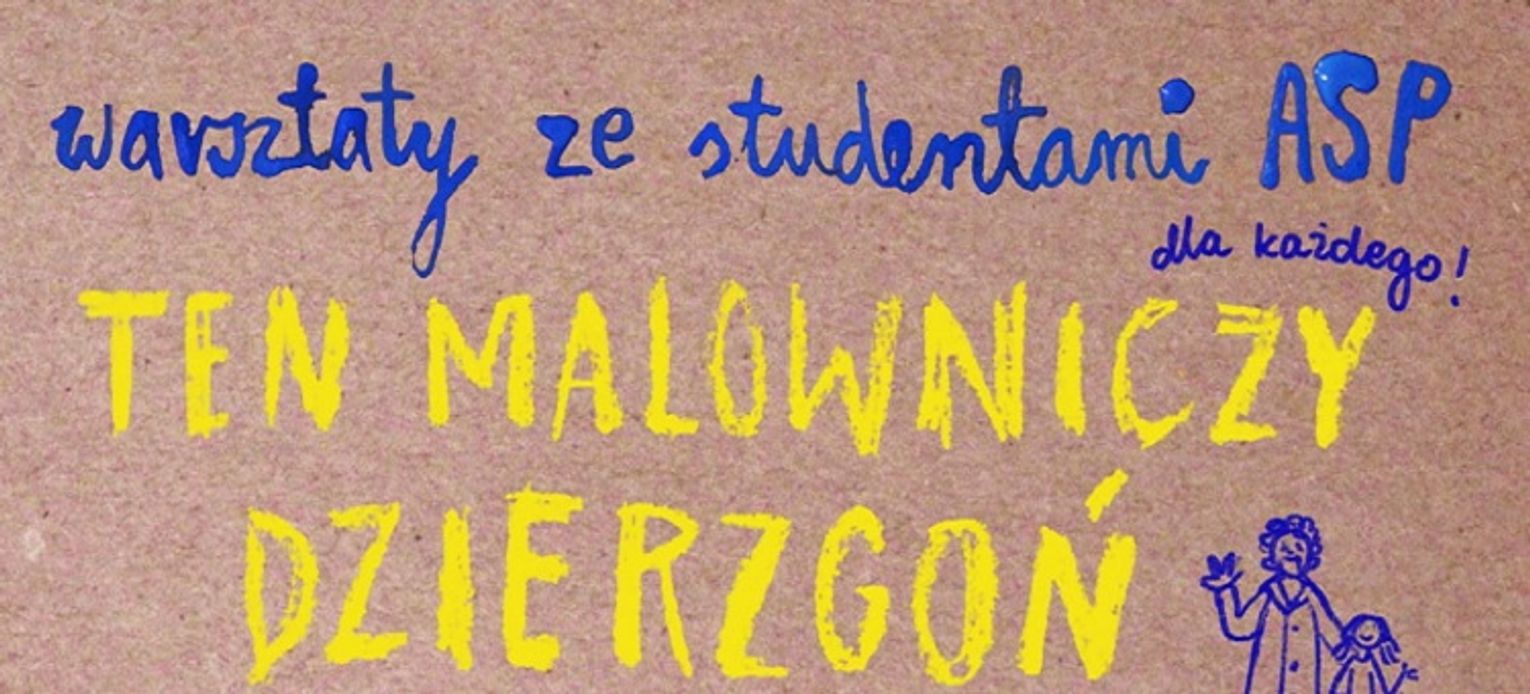 warsztaty ze studentami ASP
dla każdego!
TEN MALOWNICZY
DZIERZGOŃ